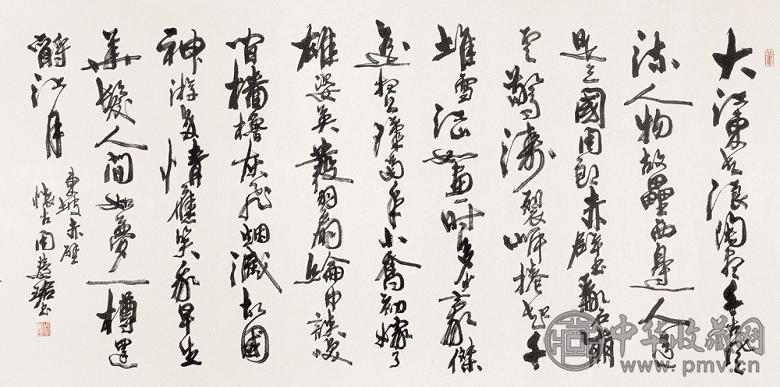 大江東去浪淘盡千古風
流人物故壘西邊人道
是三國周郎赤壁亂石崩
雲驚濤裂岸捲起千
堆雪江山如畫一時多少豪傑
遙想公瑾當年小喬初嫁了
雄姿英發羽扇綸巾談笑
間檣櫓灰飛烟滅故國
神游多情應笑我早生
華髮人間如夢一樽還
酹江月
東坡赤壁
懷古周慧珺書
中华收藏网
www.pmv.cn